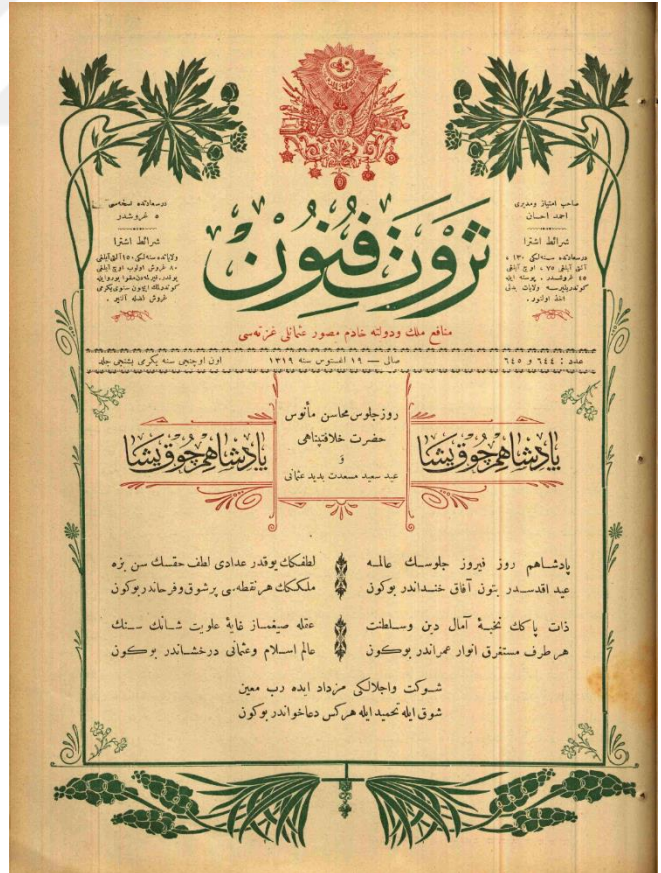 صاحب امتياز ومديرى
احمد احسان
شرائط اشترا
درسعادتده سنه‌لكى ١٣٠ ،
آلتى آيلغى ٧٥ ، اوچ آيلغى
٤٥ غروشدر . پوسته ايله
كوندريليرسه ولايات بدلى
اخذ اولنور .
درسعادتده نسخه‌سى
٥ غروشدر
شرائط اشترا
ولاياتده سنه‌لكى ١٥٠ آلتى آيلغى
٨٠ غروش اولوب اوچ آيلغى
يوقدر .
غروش
ثروت فنون
منافع ملك ودولته خادم مصور عثمانلى غزته‌سى
عدد : ٦٤٤ و ٦٤٥
صالى — ١٩ اغستوس سنه ١٣١٩
اون اوچنجى سنه يكرمى بشنجى جلد
پادشاهم چوق يشا
روز جلوس محاسن مأنوس
حضرت خلافتپناهى
و
عيد سعيد مسعدت بديد عثمانى
پادشاهم چوق يشا
پادشاهم روز فيروز جلوسك عالمه
عيد اقدسدر بتون آفاق خنداندر بوكون
لطفكك يوقدر عدادى لطف حقسك سن بزه
ملككك هر نقطه‌سى پرشوق وفرحاندر بوكون
ذات پاكك نخبهٔ آمال دين وسلطنت
هر طرف مستغرق انوار عمراندر بوكون
عقله صيغماز غايهٔ علويت شانك سنك
عالم اسلام وعثمانى درخشاندر بوكون
شوكت واجلالكى مزداد ايده رب معين
شوق ايله تحميد ايله هركس دعاخواندر بوكون